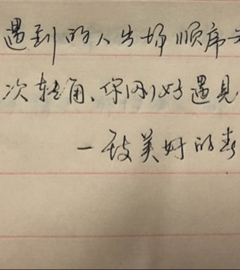 遇到的人出场顺序
次转角、你刚好遇见
一致美好的春